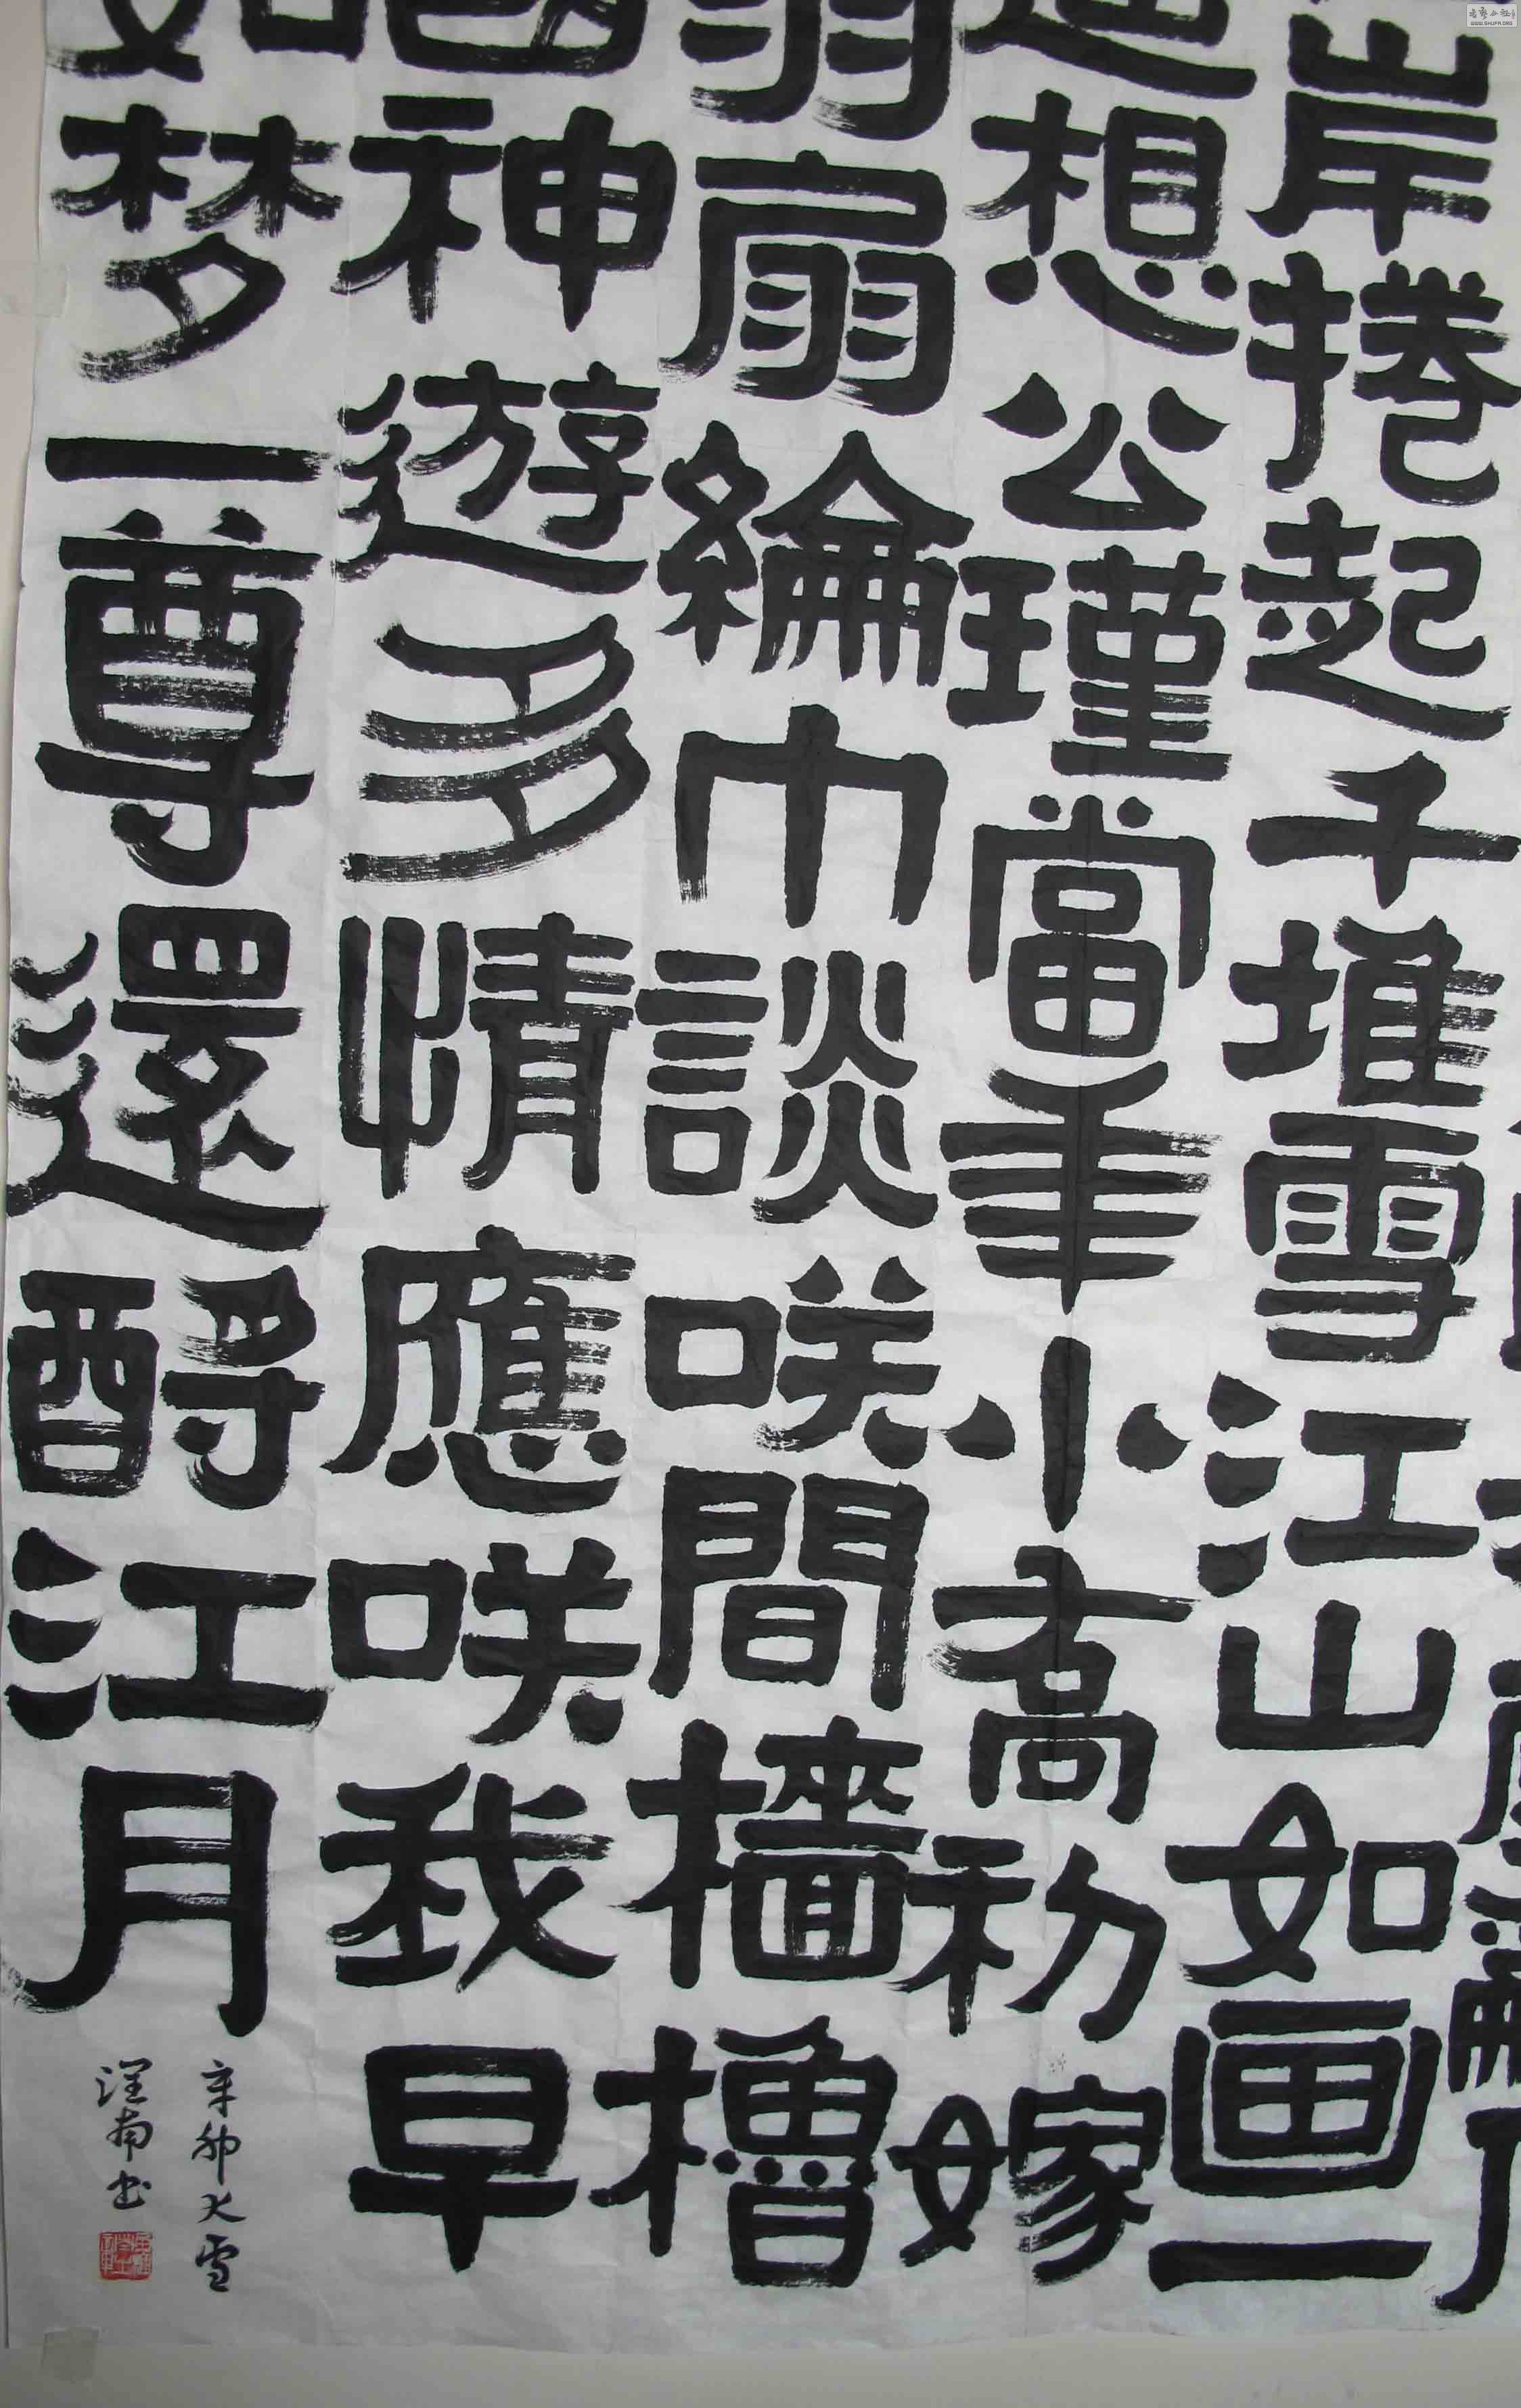 岸捲起千堆雪江山如画一
想公瑾當年小高初嫁
羽扇綸巾談咲間檣櫓
國神遊多情應咲我早
如梦一尊還酹江月
辛卯大雪
WWW.SHUFA.ORG